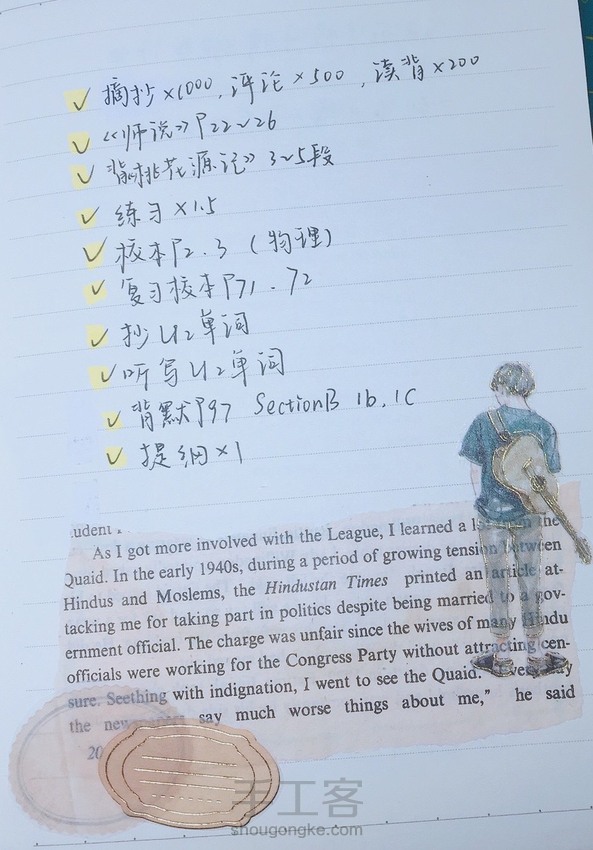 ✓ 摘抄×1000，评论×500，读背×200
✓ 《师说》P22~26
✓ 背《桃花源记》3~5段
✓ 练习×1.5
✓ 校本P2.3（物理）
✓ 复习校本P71.72
✓ 抄U2单词
✓ 听写U2单词
✓ 背默P97 SectionB 1b.1C
✓ 提纲×1
udent
As I got more involved with the League, I learned a the
Quaid. In the early 1940s, during a period of growing tension between
Hindus and Moslems, the Hindustan Times printed an article at-
tacking me for taking part in politics despite being married to a gov-
ernment official. The charge was unfair since the wives of many Hindu
officials were working for the Congress Party without attracting cen-
sure. Seething with indignation, I went to see the Quaid.
the say much worse things about me,” he said
20
手工客
shougongke.com